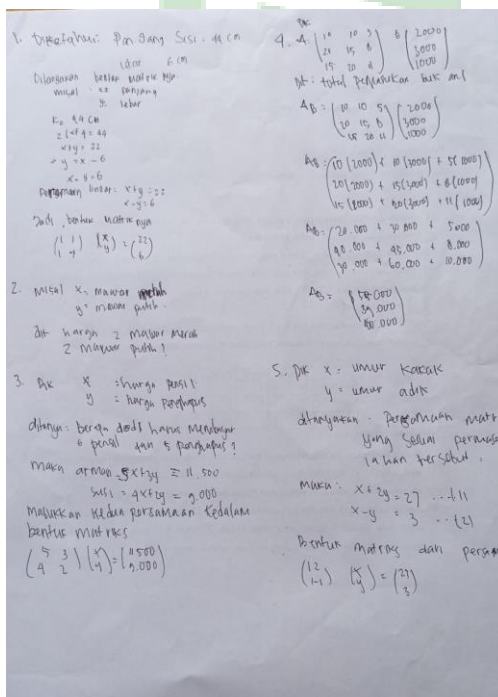 1. Diketahui: Panjang Sisi: 44 cm
lebar 6 cm
Ditanyakan bentuk matriknya
misal : x= panjang
y: lebar
K= 44 cm
x+y = 22
y = x - 6
x - y = 6
Persamaan : x+y = 22
x-y = 6
Jadi, bentuk Matriknya
(1 1) (x) = (22)
(1 -1) (y) (6)
2. Misal x= mawar merah
y= mawar putih.
dit harga 2 mawar merah
2 mawar putih?
3. Dik x = harga pensil
y = harga penghapus
ditanya: berapa dodi harus membayar
6 pensil dan 5 penghapus?
maka arman = 5x+3y = 11.500
susi = 4x+2y = 9.000
Masukkan kedua persamaan kedalam
bentuk matriks
(5 3) (x) = (11500)
(4 2) (y) (9.000)
4. Dik
A: (10 10 5) B (2000)
(20 15 8) (3000)
(15 20 11) (1000)
Dit: total
AB = (10 10 5) (2000)
(20 15 8) (3000)
(15 20 11) (1000)
AB = (10 (2000) + 10 (3000) + 5(1000)
20(2000) + 15(3000) + 8(1000)
15(2000) + 20(3000) + 11(1000)
AB = (20.000 + 30.000 + 5000
40.000 + 45.000 + 8.000
30.000 + 60.000 + 10.000)
AB =
5. Dik x = umur Kakak
y = umur adik
ditanyakan. Persamaan matr
yang sesuai permasa
lahan tersebut.
maka: x + 2y = 27 ...(1)
x - y = 3 ...(2)
Bentuk matriks dari persa
(1 2) (x) = (27)
(1 -1) (y) (3)